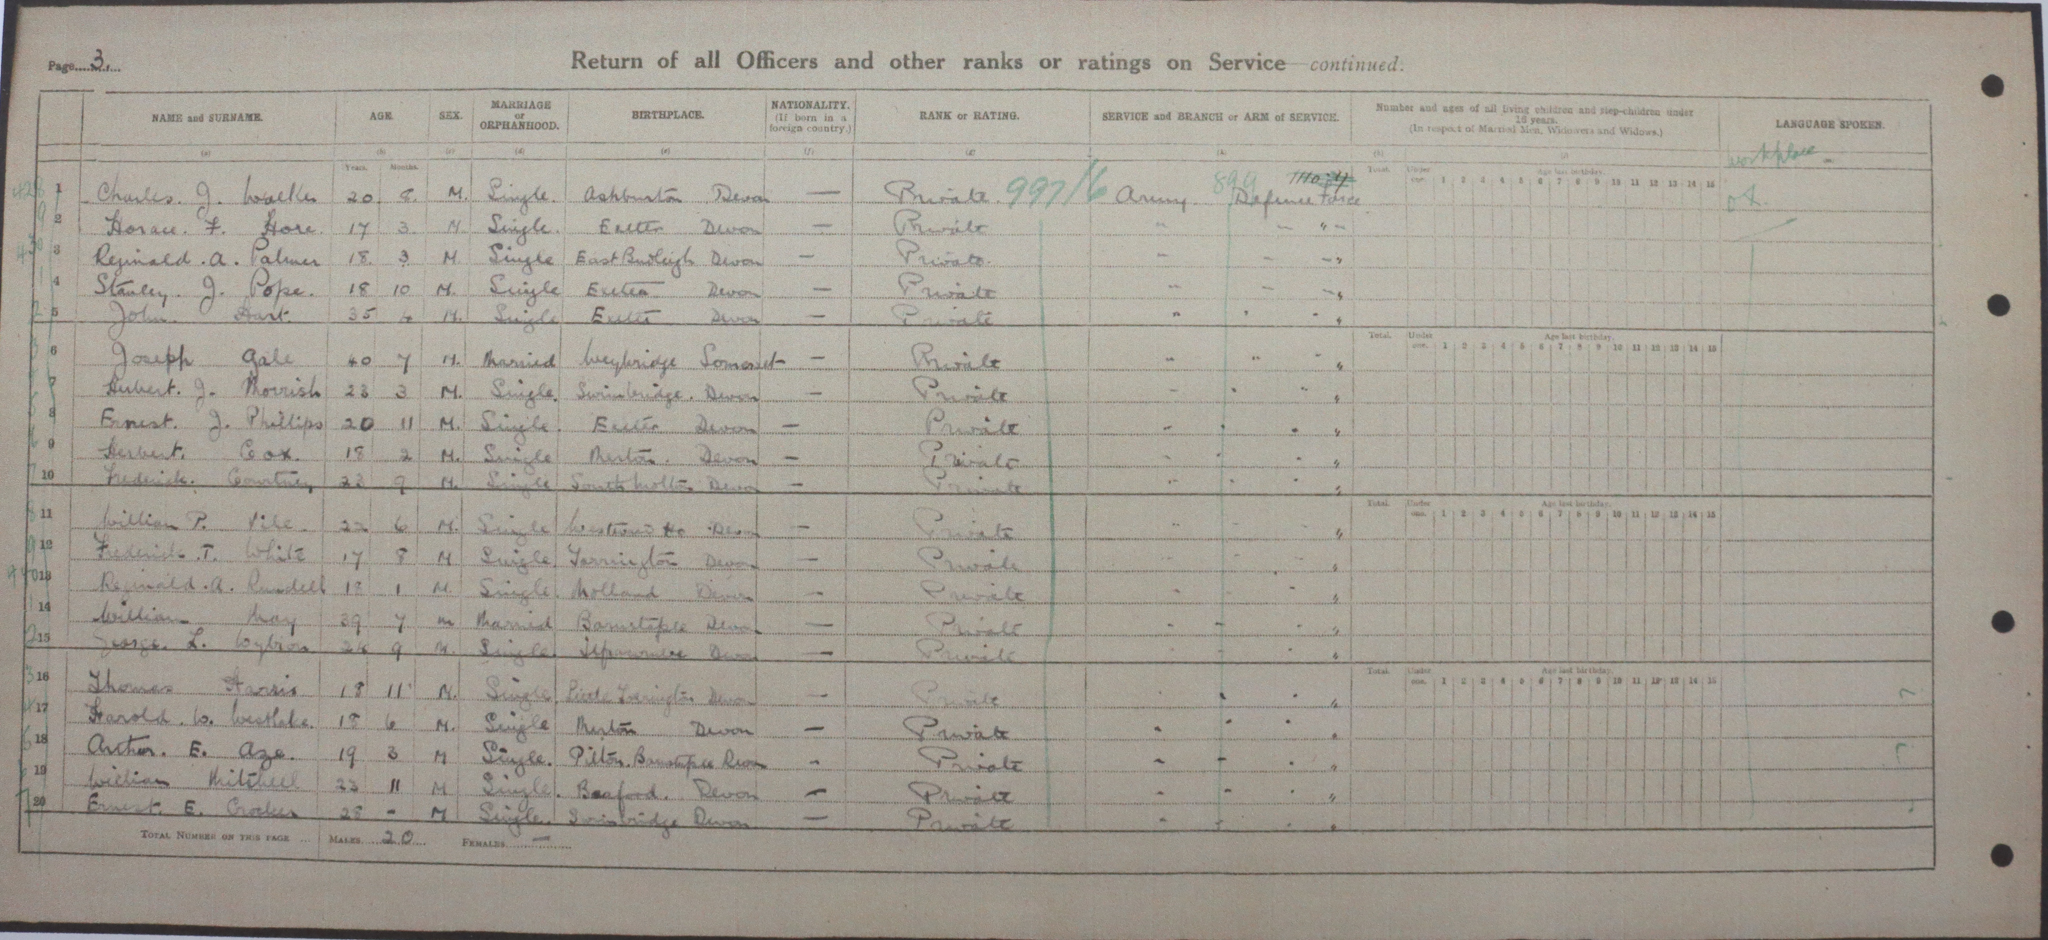 Page 3.
Return of all Officers and other ranks or ratings on Service—continued.
NAME and SURNAME. AGE. SEX. MARRIAGE or ORPHANHOOD. BIRTHPLACE. NATIONALITY. (If born in a foreign country.) RANK or RATING. SERVICE and BRANCH or ARM of SERVICE. Number and ages of all living children and step-children under 16 years. (In respect of Married Men, Widowers and Widows.) LANGUAGE SPOKEN.
(a) (b) (c) (d) (e) (f) (g) (h) (i)
Years. Months. Total. Under one. Age last birthday. workplace
1 2 3 4 5 6 7 8 9 10 11 12 13 14 15
1 Charles. J. Walker 20 8 M. Single. Ashburton Devon — Private. 997/6 Army. 899 Defence Force
2 Horace. F. Hore. 17 3 M. Single. Exeter Devon — Private " " "
3 Reginald. A. Palmer 18 3 M. Single East Budleigh Devon — Private. " " "
4 Stanley. J. Pope. 18 10 M. Single Exeter Devon — Private " " "
5 John. Hart. 35 4 M. Single Exeter Devon — Private " " "
Total. Under one. Age last birthday.
1 2 3 4 5 6 7 8 9 10 11 12 13 14 15
6 Joseph Gale 40 7 M. Married Weybridge Somerset — Private " " "
7 Hubert. J. Morrish 23 3 M. Single. Swimbridge. Devon — Private " " "
8 Ernest. J. Phillips 20 11 M. Single. Exeter Devon — Private " " "
9 Herbert. Cox. 18 2 M. Single Merton. Devon — Private " " "
10 Frederick. Courtney 23 9 M. Single South Molton Devon — Private " " "
Total. Under one. Age last birthday.
1 2 3 4 5 6 7 8 9 10 11 12 13 14 15
11 William P. Pile 22 6 M. Single Westward Ho Devon — Private " " "
12 Frederick. T. White 17 8 M Single Torrington Devon — Private " " "
13 Reginald. A. Rundell 18 1 M. Single. Molland Devon — Private " " "
14 William May 39 7 m Married Barnstaple Devon — Private " " "
15 George. L. Wybron 24 9 M. Single. Ilfracombe Devon — Private " " "
Total. Under one. Age last birthday.
1 2 3 4 5 6 7 8 9 10 11 12 13 14 15
16 Thomas Harris 18 11 M. Single. Little Torrington Devon — Private " " "
17 Harold. W. Westlake. 18 6 M. Single Merton Devon — Private " " "
18 Arthur. E. Aze. 19 3 M Single. Pilton. Barnstaple Devon - Private " " "
19 William Mitchell 23 11 M Single. Beaford. Devon — Private " " "
20 Ernest. E. Crocker 28 - M Single. Swimbridge Devon — Private " " "
TOTAL NUMBER ON THIS PAGE ... MALES 20 FEMALES —